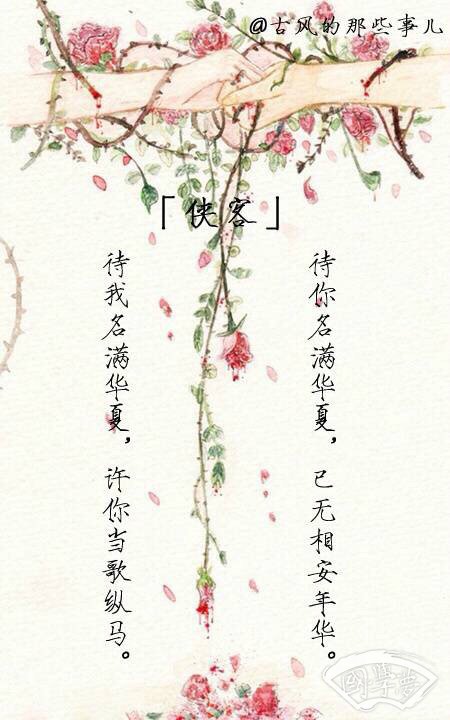 @古风的那些事儿
「侠客」
待我名满华夏，许你当歌纵马。
待你名满华夏，已无相安年华。
國學夢